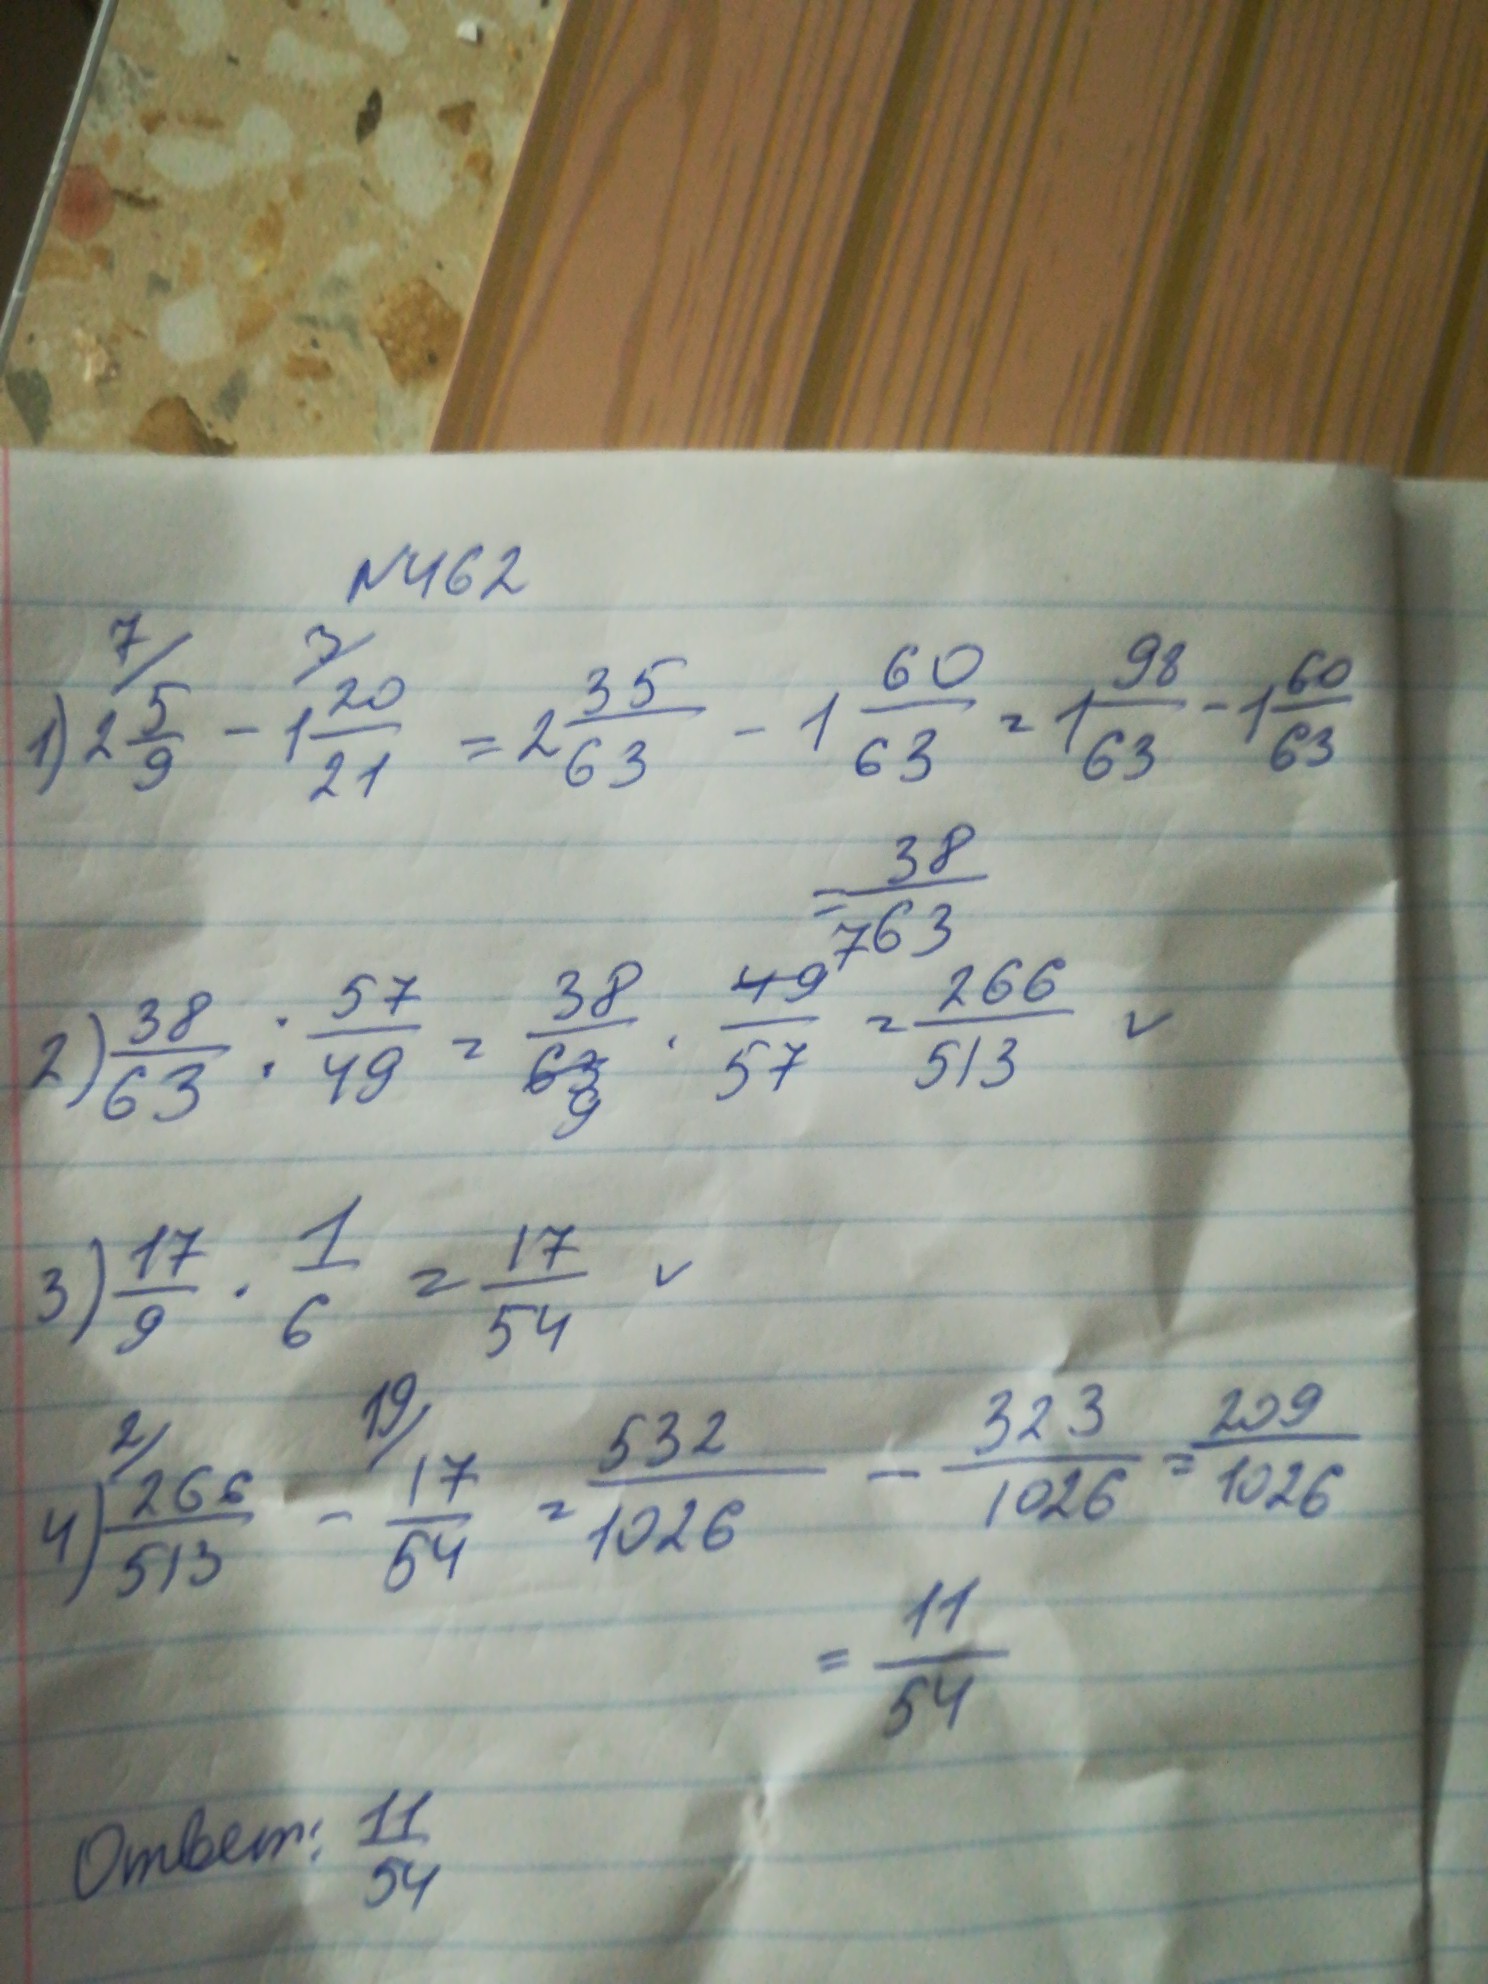 N462
7/ 3/
1) 2 5/9 - 1 20/21 = 2 35/63 - 1 60/63 = 1 98/63 - 1 60/63
= 38/63
2) 38/63 : 57/49 = 38/63 9 · 49 7/57 = 266/513 v
3) 17/9 · 1/6 = 17/54 v
2/ 19/
4) 266/513 - 17/54 = 532/1026 - 323/1026 = 209/1026
= 11/54
Ответ: 11/54